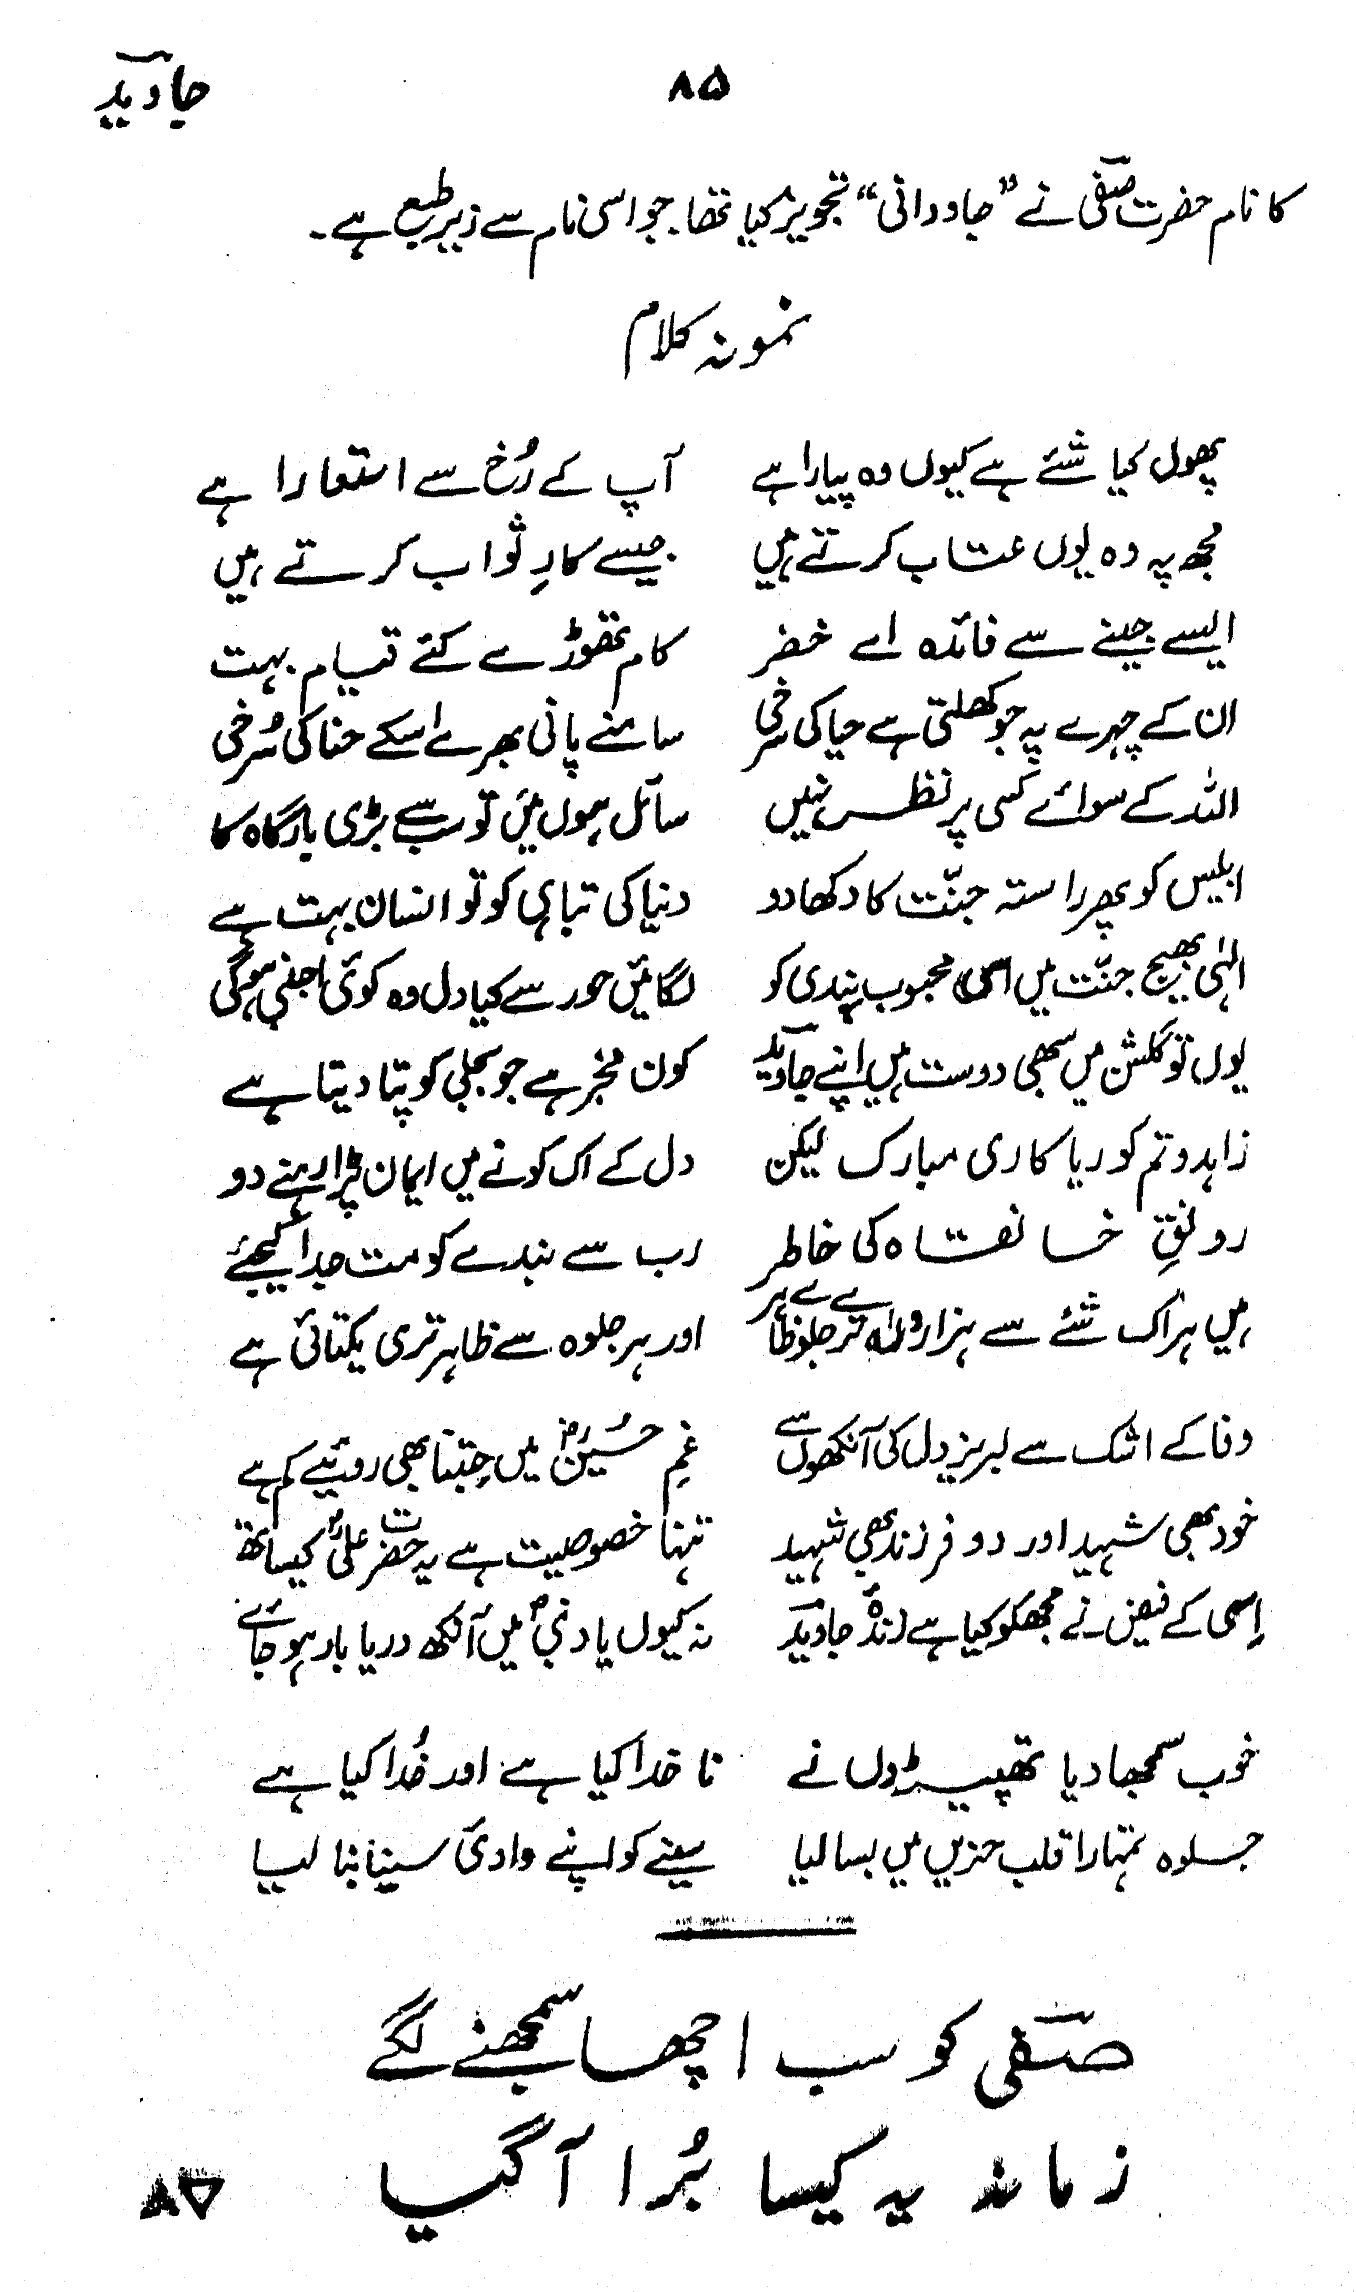 جاوید ۸۵
کا نام حضرت صفی نے ”جاودانی“ تجویز کیا تھا۔ جو اسی نام سے زیر طبع ہے۔
نمونہ کلام
پھول کیا شئے ہے کیوں وہ پیارا ہے آپ کے رُخ سے استعارا ہے
مجھ پہ وہ یوں عتاب کرتے ہیں جیسے کارِ ثواب کرتے ہیں
ایسے جینے سے فائدہ اے خضر کام تھوڑے کئے قیام بہت
ان کے چہرے پہ جو کھلتی ہے حیا کی سرخی سامنے پانی بھرے اسکے حنا کی سُرخی
اللہ کے سوائے کسی پر نظر نہیں سائل ہوں میں تو سب سے بڑی بارگاہ کا
ابلیس کو پھر راستہ جنّت کا دکھا دو دنیا کی تباہی کو تو انسان بہت ہے
الٰہی بھیج جنّت میں اسی محبوب بندی کو لگائیں حور سے کیا دل وہ کوئی اجنبی ہوگی
یوں تو گلشن میں سبھی دوست ہیں اپنے جاوید کون مخبر ہے جو بجلی کو پتا دیتا ہے
زاہدو تم کو ریا کاری مبارک لیکن دل کے اک کونے میں ایمان پڑا رہنے دو
رونقِ خانقاہ کی خاطر رب سے بندے کو مت جدا کیجئے
ہیں ہر اک شئے سے ہزاروں ترے جلوے ظاہر اور ہر جلوہ سے ظاہر تری یکتائی ہے
وفا کے اشک سے لبریز دل کی آنکھوں سے غمِ حسینؓ میں جتنا بھی روئیے کم ہے
خود بھی شہید اور دو فرزند بھی شہید تنہا خصوصیت ہے یہ حضرت علیؓ کیساتھ
اِسی کے فیض نے مجھکو کیا ہے زندۂ جاوید نہ کیوں یادِ نبیؐ میں آنکھ دریا بار ہو جائے
خوب سمجھا دیا تھپیڑوں نے نا خدا کیا ہے اور خُدا کیا ہے
جلوہ تمہارا قلب حزیں میں بسا لیا سینے کو اپنے وادیٔ سینا بنا لیا
صفی کو سب اچھا سمجھنے لگے
زمانہ یہ کیسا بُرا آ گیا
۸۵